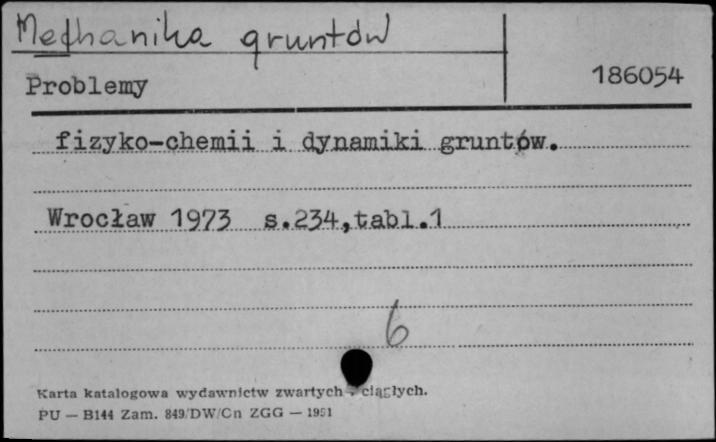 Mechanika gruntów
Problemy 186054
fizyko-chemii i dynamiki gruntów.
Wrocław 1973 s.234,tabl.1
6
Karta katalogowa wydawnictw zwartych ciągłych.
PU — B144 Zam. 849/DW/Cn ZGG — 1951